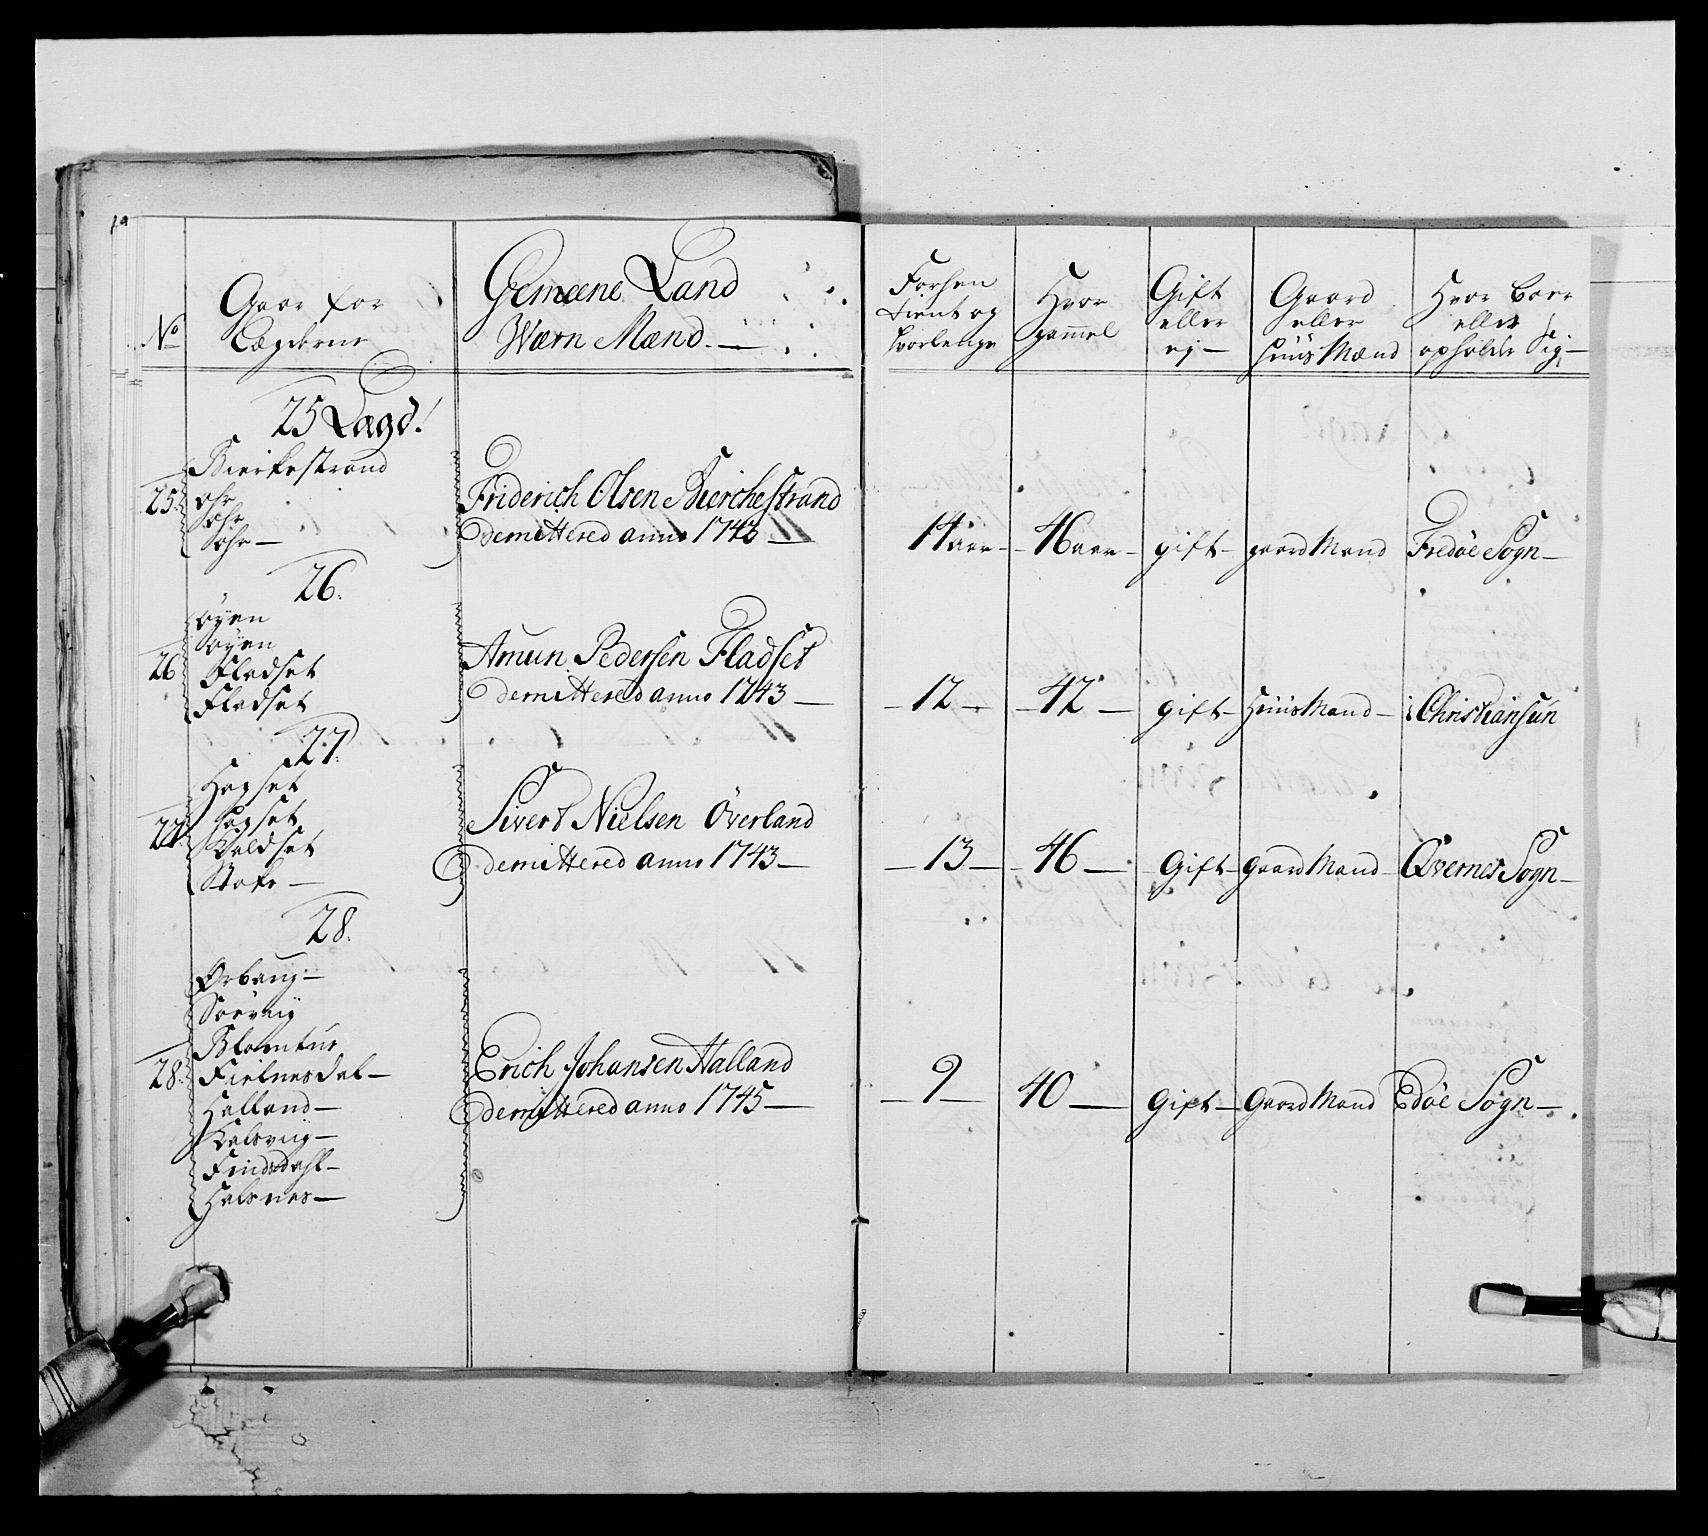 No
Gaar for
Lægderne
Gemeene Land
Wærn Mænd.—
Forhen
tient og
hvorlenge
Hvor
gammel
Gift
eller
ej—
Gaard
eller
Huus Mænd
Hvor boer
eller
opholder Sig—
25 Lægd!
Bierkestrand
25. ohr
Dohr
Dohr—
Friderich Olsen Bierchestrand
demittered anno 1743—
14 aar— 46 aar— gift— gaard Mand Fredøe Sogn—
26.
öÿen
Döÿen
26 Fladset
Fladset
Amun Pedersen Fladset
demittered anno 1743—
—12— —42— gift— Huus Mand— Christiansun
27.
Hopset
27. Hopset
Qvalset
Stoke—
Sivert Nielsen Överland
demittered anno 1743—
—13— —46— Gift— gaard Mand— Qvernes Sogn—
28.
Orbaug—
Sörviig
28. Fielnesdal—
Halland—
Kalsviig—
Findsdahl—
Halsnes—
Erich Johansen Halland
demittered anno 1745—
—9— 40— Gift— Gaard Mand Edöe Sogn—